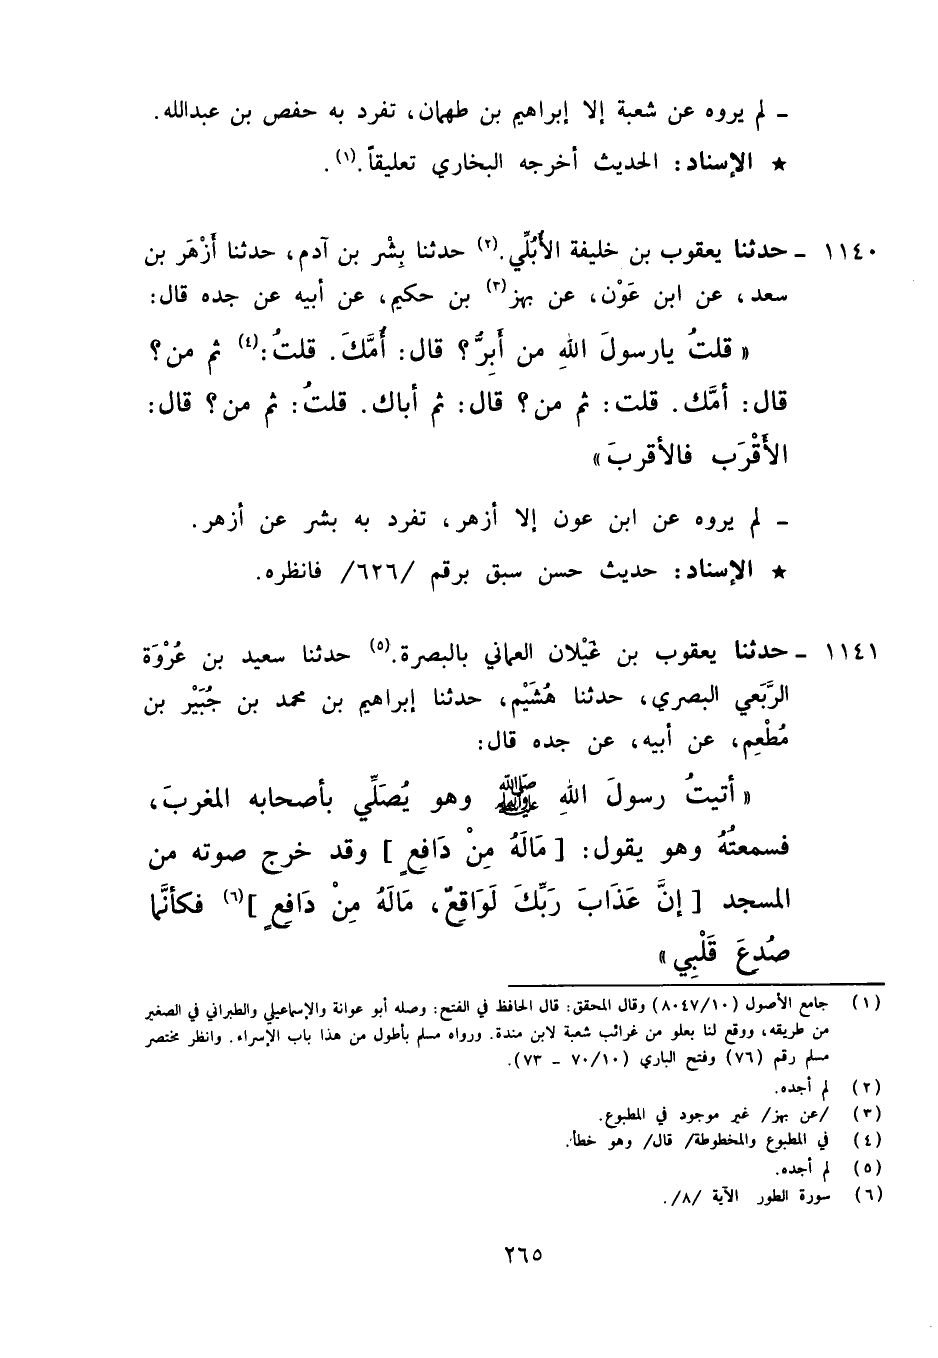 - لم يروه عن شعبة إلا إبراهيم بن طهمان، تفرد به حفص بن عبدالله.
★ الإسناد: الحديث أخرجه البخاري تعليقاً.(١).
١١٤٠ - حدثنا يعقوب بن خليفة الأُبُلِّي.(٢) حدثنا بِشْر بن آدم، حدثنا أَزْهَر بن
سعد، عن ابن عَوْن، عن بهز(٣) بن حكيم، عن أبيه عن جده قال:
« قلتُ يارسولَ اللهِ من أَبِرُّ؟ قال: أُمَّكَ. قلتُ:(٤) ثم من؟
قال: أمَّك. قلت: ثم من؟ قال: ثم أباك. قلتُ: ثم من؟ قال:
الأَقْرَب فالأقربَ»
- لم يروه عن ابن عون إلا أزهر، تفرد به بشر عن أزهر.
★ الإسناد: حديث حسن سبق برقم /٦٢٦/ فانظره.
١١٤١ - حدثنا يعقوب بن غَيْلان العماني بالبصرة.(٥) حدثنا سعيد بن عُرْوَة
الرَّبَعي البصري، حدثنا هُشَيْم، حدثنا إبراهيم بن محمد بن جُبَيْر بن
مُطْعِم، عن أبيه، عن جده قال:
« أتيتُ رسولَ اللهِ ﷺ وهو يُصَلِّي بأصحابه المغربَ،
فسمعتُهُ وهو يقول: [ مَالَهُ مِنْ دَافِعٍ ] وقد خرج صوته من
المسجد [ إنَّ عَذَابَ رَبِّكَ لَوَاقِعٌ، مَالَهُ مِنْ دَافِعٍ ](٦) فكأنَّما
صُدِعَ قَلْبِي »
(١) جامع الأصول (٨٠٤٧/١٠) وقال المحقق: قال الحافظ في الفتح: وصله أبو عوانة والإسماعيلي والطبراني في الصغير
من طريقه، ووقع لنا بعلو من غرائب شعبة لابن مندة. ورواه مسلم بأطول من هذا باب الإسراء. وانظر مختصر
مسلم رقم (٧٦) وفتح الباري (٧٠/١٠ - ٧٣).
(٢) لم أجده.
(٣) /عن بهز/ غير موجود في المطبوع.
(٤) في المطبوع والمخطوطة/ قال/ وهو خطأ.
(٥) لم أجده.
(٦) سورة الطور الآية /٨/.
٢٦٥